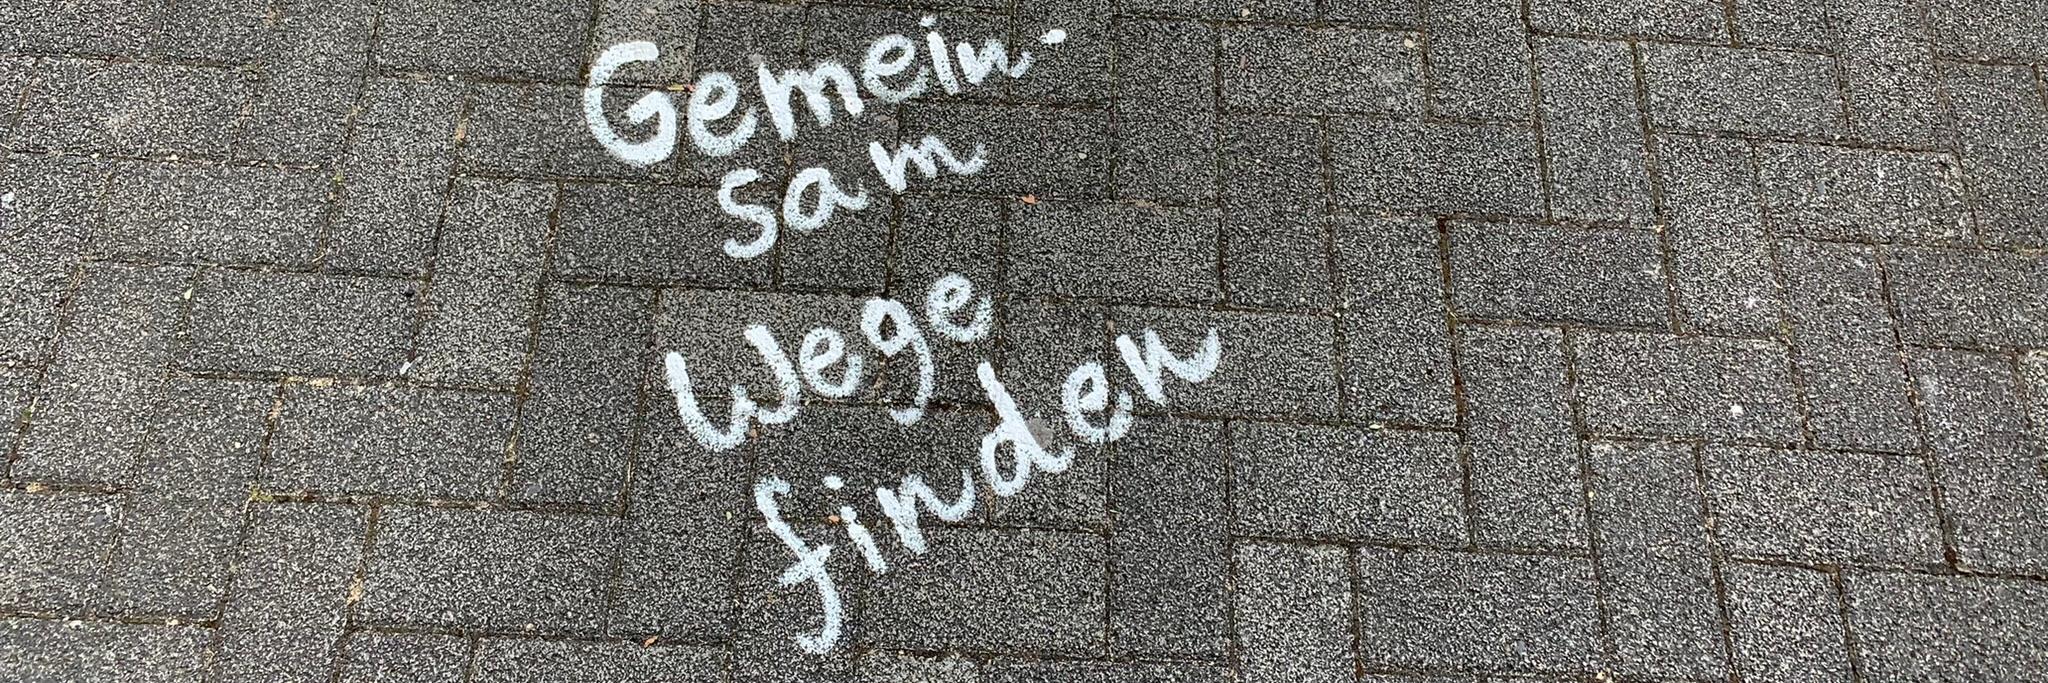 Gemein-
sam
Wege
finden